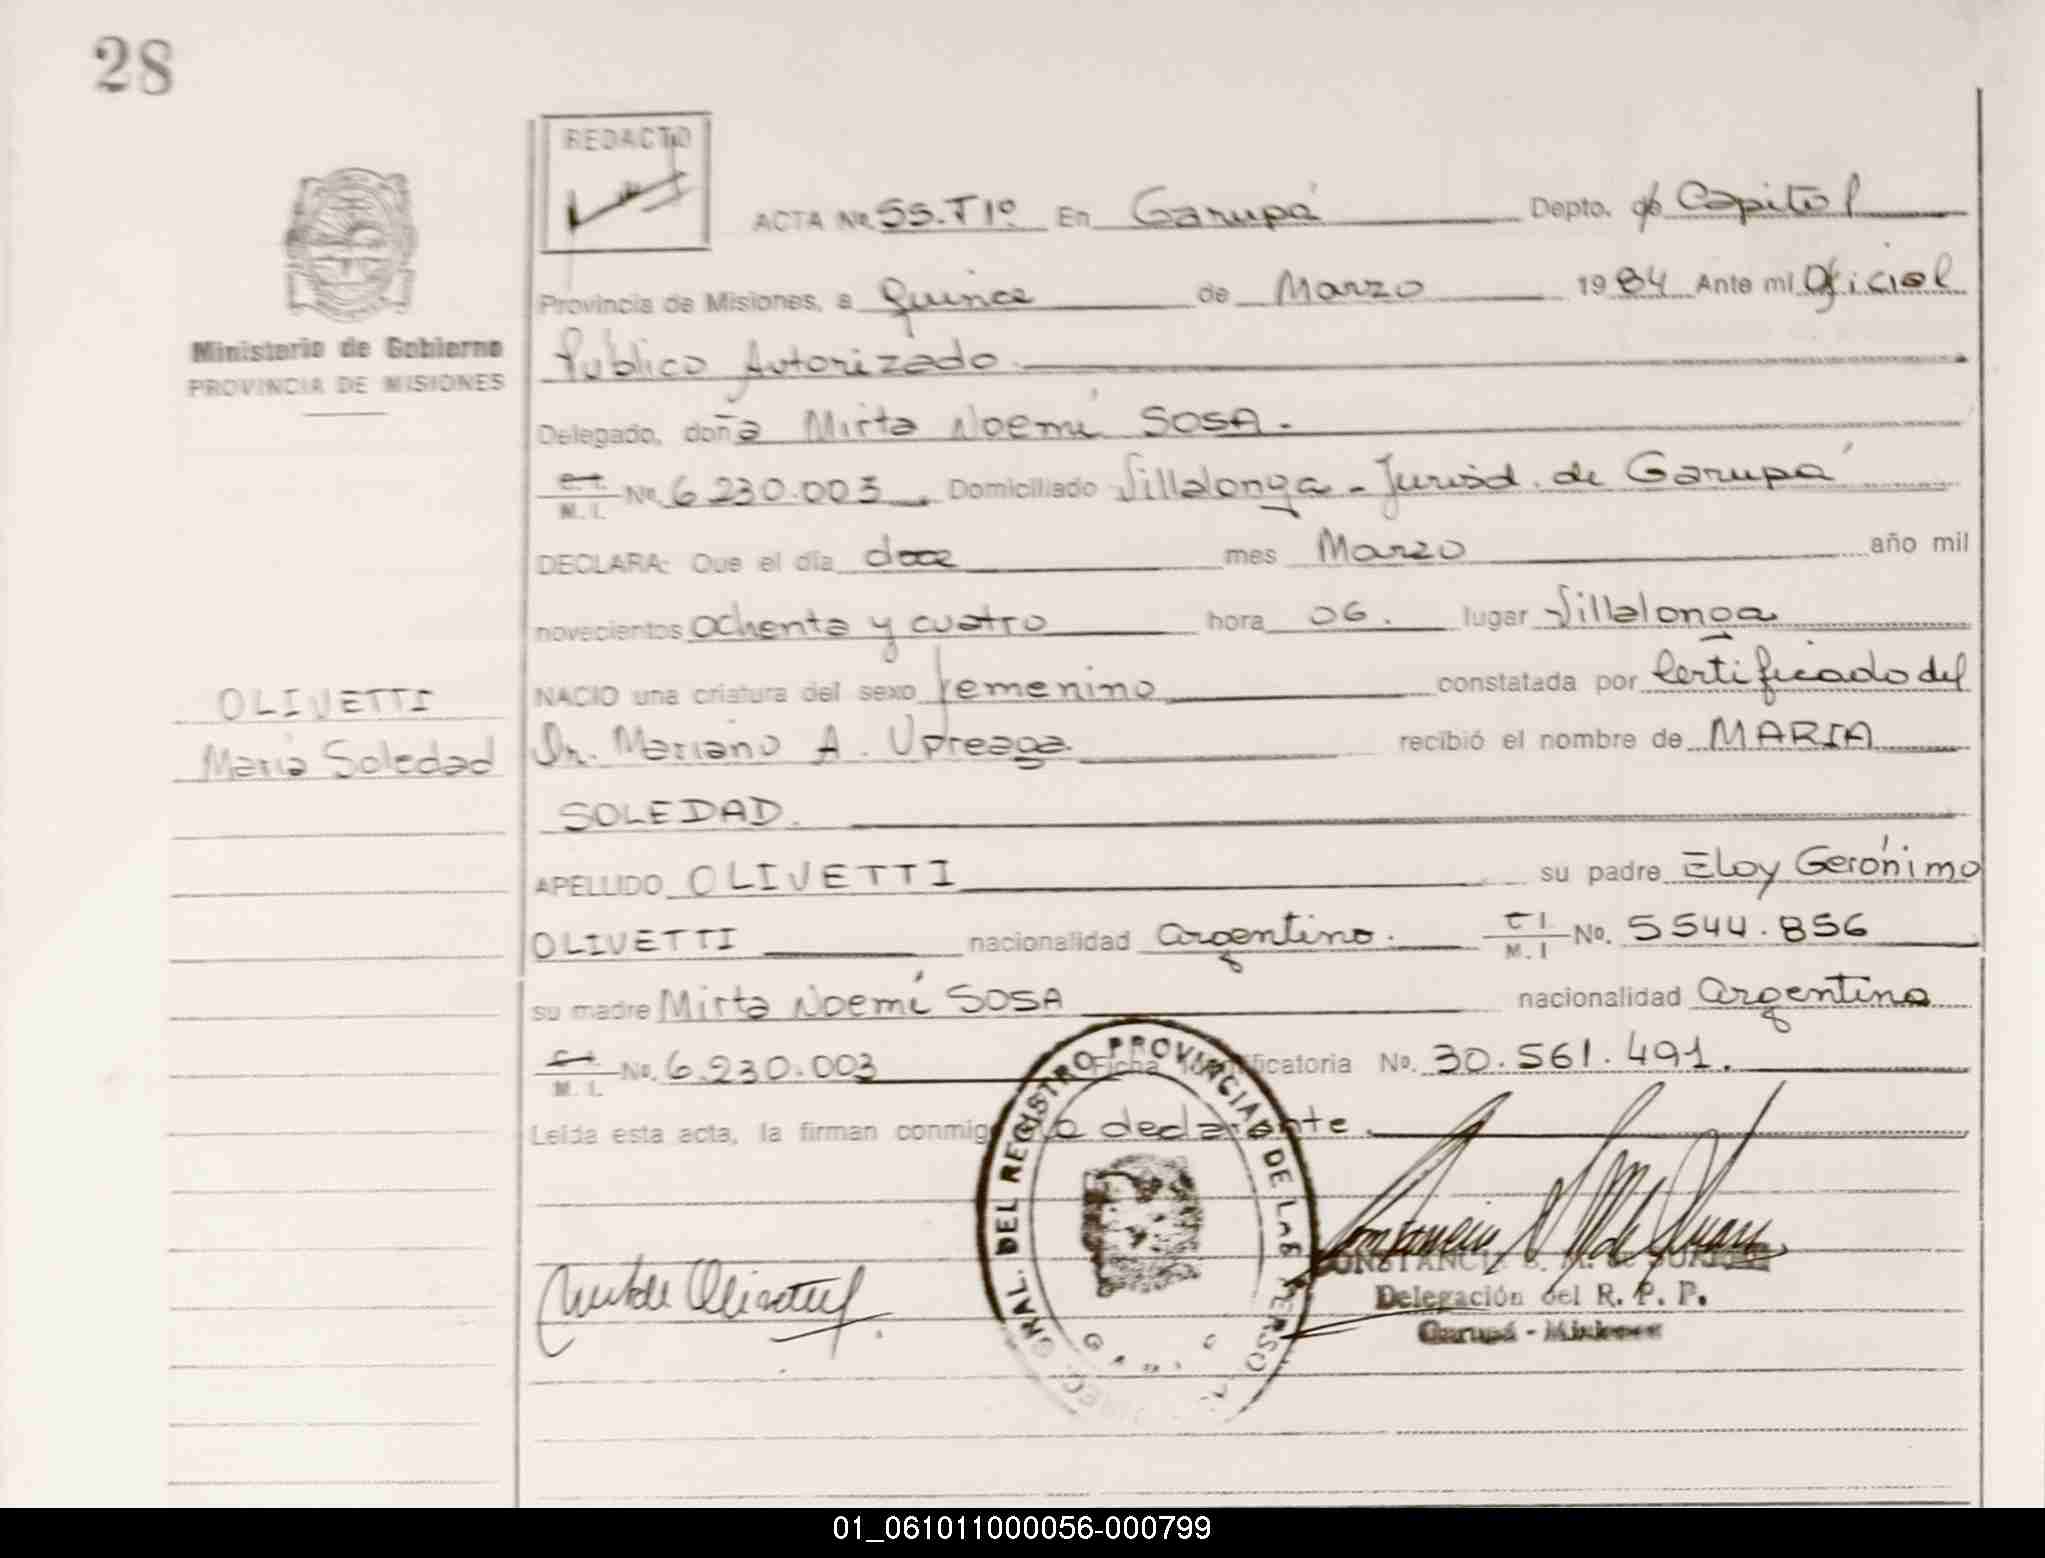 28
REDACTO
ACTA No. 55.T1º En Garupá Depto. Capital
Provincia de Misiones, a Quince de Marzo 1984 Ante mi Oficial
Ministerio de Gobierno
PROVINCIA DE MISIONES
Publico Autorizado.
Delegado, doña Mirta Noemí SOSA.
C.I. M.I. No. 6.230.003. Domiciliado Villalonga - Jurisd. de Garupá
DECLARA: Que el día doce mes Marzo año mil
novecientos ochenta y cuatro hora 06. lugar Villalonga
NACIO una criatura del sexo femenino constatada por Certificado del
OLIVETTI
Dr. Mariano A. recibió el nombre de MARIA
María Soledad
SOLEDAD.
APELLIDO OLIVETTI su padre Eloy Gerónimo
OLIVETTI nacionalidad argentino. C.I. M.I No. 5544.856
su madre Mirta Noemí SOSA nacionalidad argentina
C.I. M.I. No. 6.230.003 Ficha Identificatoria No. 30.561.491.
Leída esta acta, la firman conmigo la declarante.
GRAL. DEL REGISTRO PROVINCIAL DE LAS PERSO
Delegación del R. P. P.
Garupá - Misiones
01_061011000056-000799